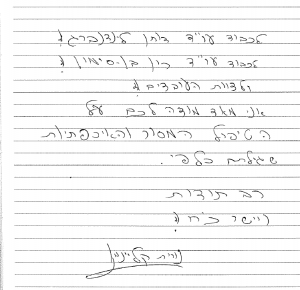 לכבוד עו"ד רותן לינדנברג!
לכבוד עו"ד רון בן-סימון!
ולצוות העובדים!
אני מאד מודה לכם על
הטיפול המסור והאיכפתיות
שגילתם כלפי.
רב תודות
ויישר כח!
נורית קליינמן